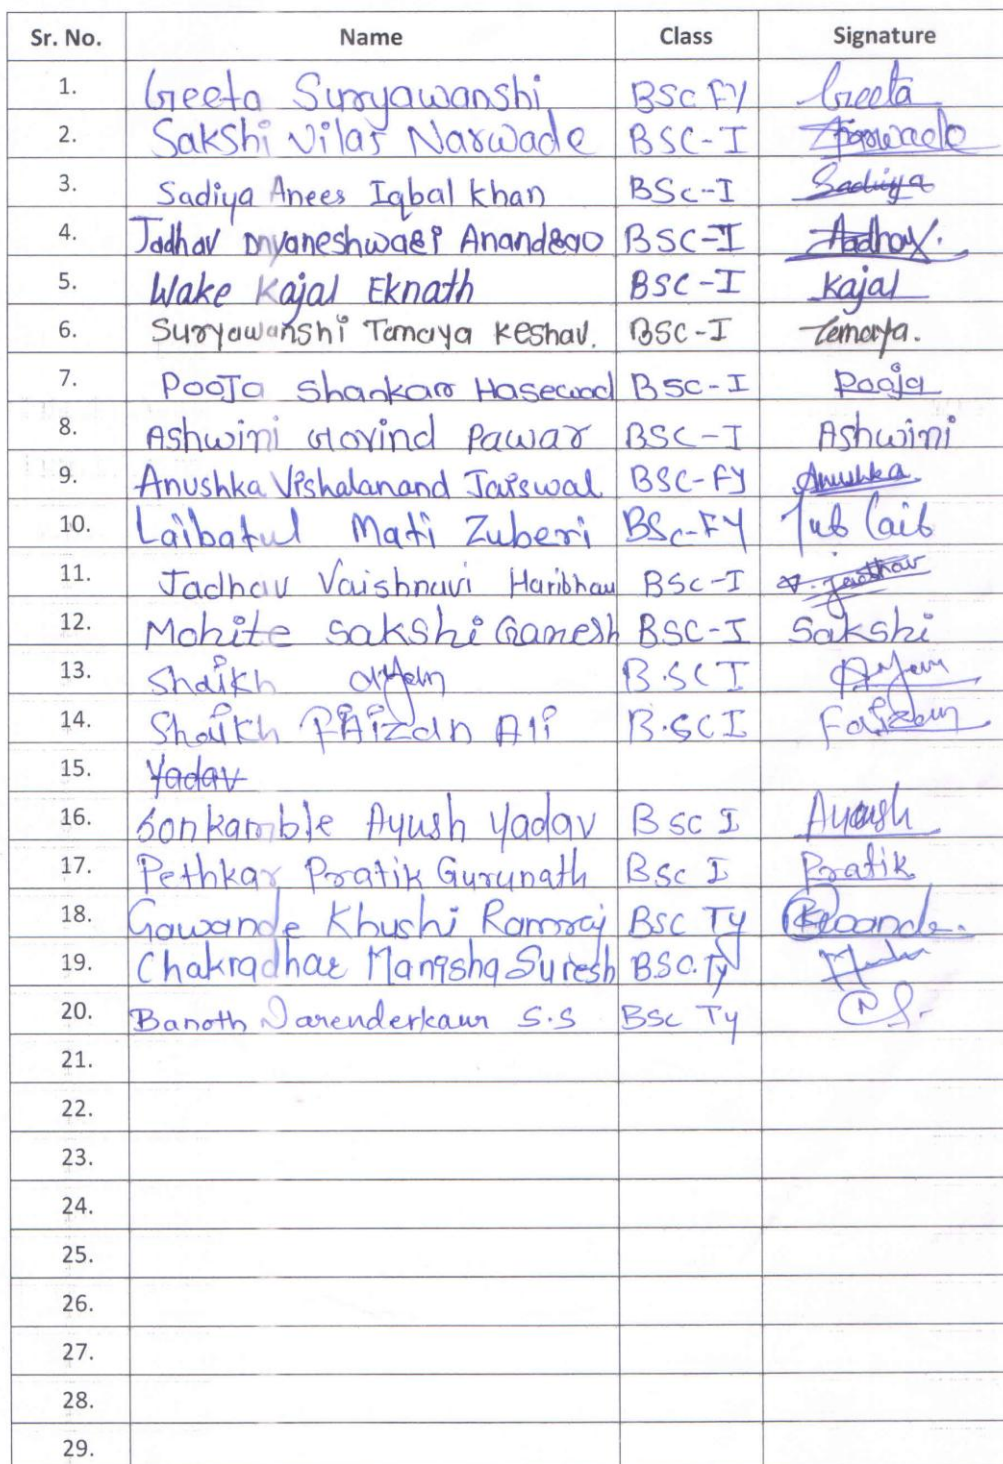 Sr. No. Name Class Signature
1. Geeta Surryawanshi BSc FY Geeta
2. Sakshi Vilas Narwade BSC-I Narwade
3. Sadiya Anees Iqbal Khan BSc-I Sadiya
4. Jadhav Dnyaneshwari Anandrao BSC-I Jadhav.
5. Wake Kajal Eknath BSC-I Kajal
6. Suryawanshi Tamaya Keshav. BSC-I Temarya.
7. Pooja Shankar Hasewad BSC-I Pooja
8. Ashwini Govind Pawar BSC-I Ashwini
9. Anushka Vishalanand Jaiswal BSC-FY Anushka
10. Laibatul Mati Zuberi BSc-FY
11. Jadhav Vaishnavi Haribhau BSC-I V. Jadhav
12. Mohite Sakshi Ganesh BSC-I Sakshi
13. Shaikh B.SC I
14. Shaikh FAizan Ali B.SC I Faizan
15. Yadav
16. Sonkamble Ayush Yadav BSC I Ayush
17. Pethkar Pratik Gurunath BSc I Pratik
18. Gawande Khushi Ramraj BSC Ty
19. Chakradhar Manisha Suresh BSC.Ty
20. Banoth Narenderkaur S.S BSC Ty
21.
22.
23.
24.
25.
26.
27.
28.
29.